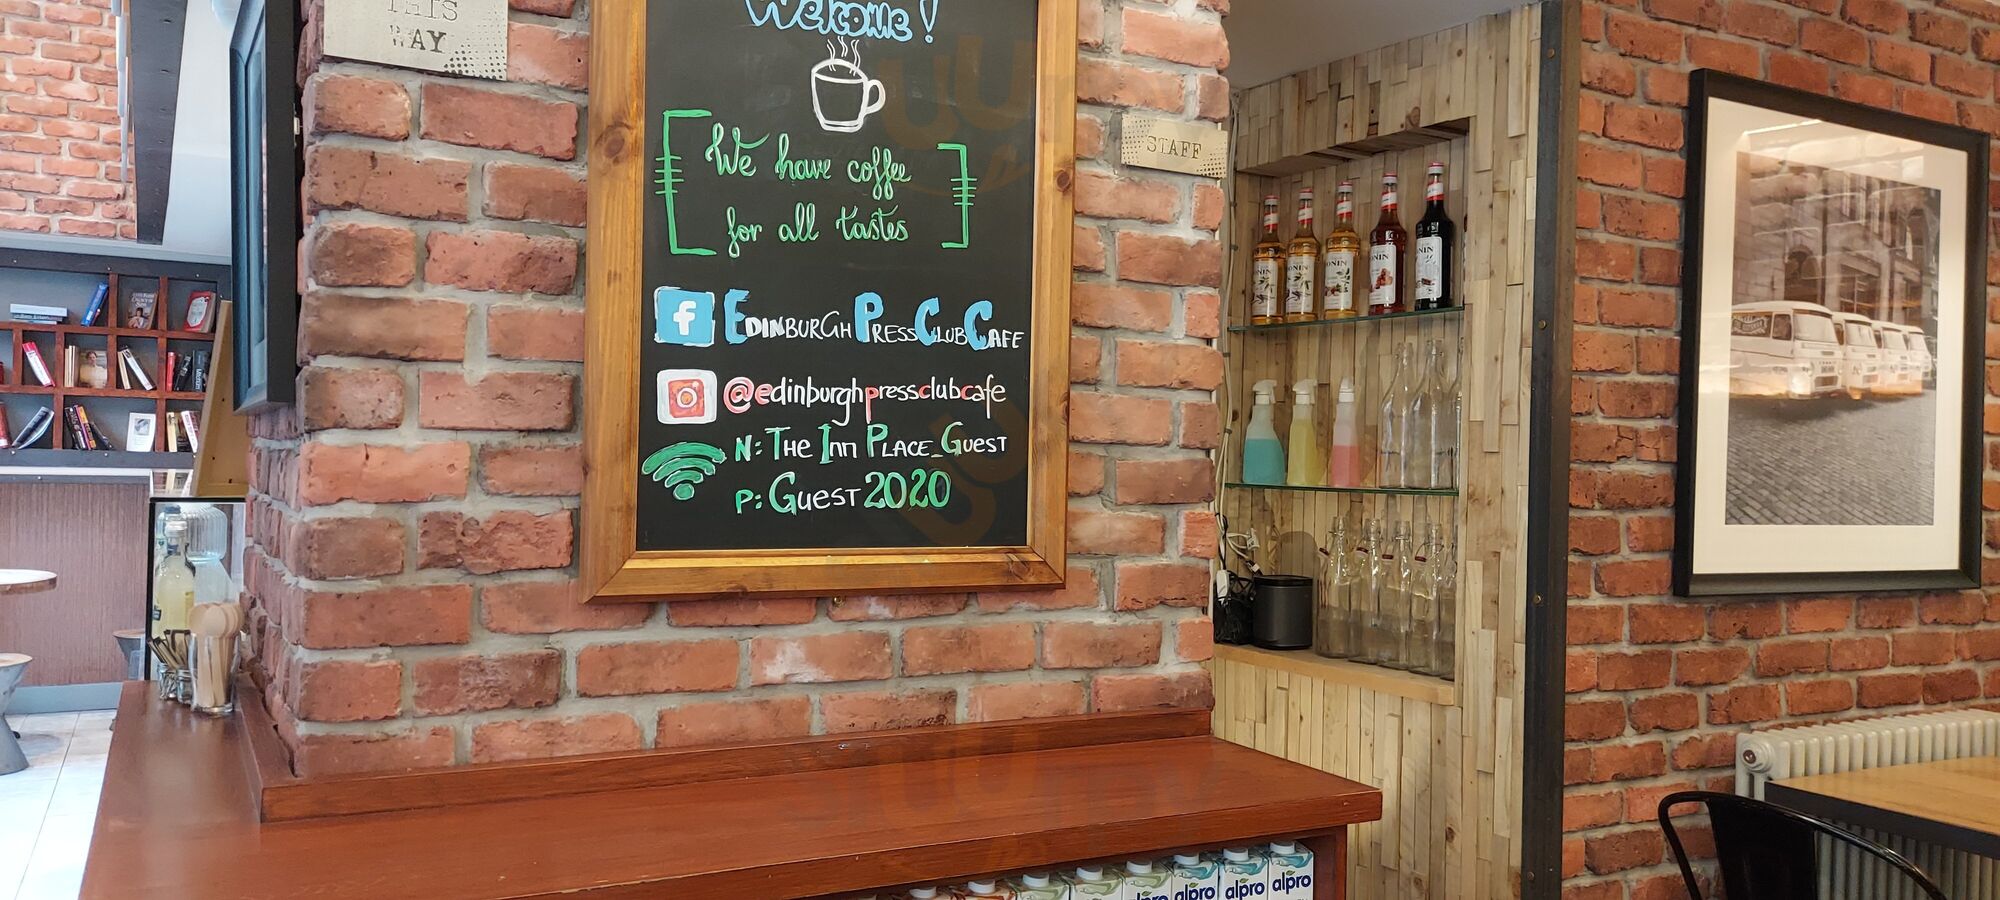 THIS
WAY
Welcome!
We have coffee
for all tastes
f EDINBURGH PRESS CLUB CAFE
@edinburghpressclubcafe
N: THE INN PLACE_GUEST
P: GUEST2020
STAFF
MONIN
MONIN
MONIN
MONIN
MONIN
alpro
alpro
alpro
alpro